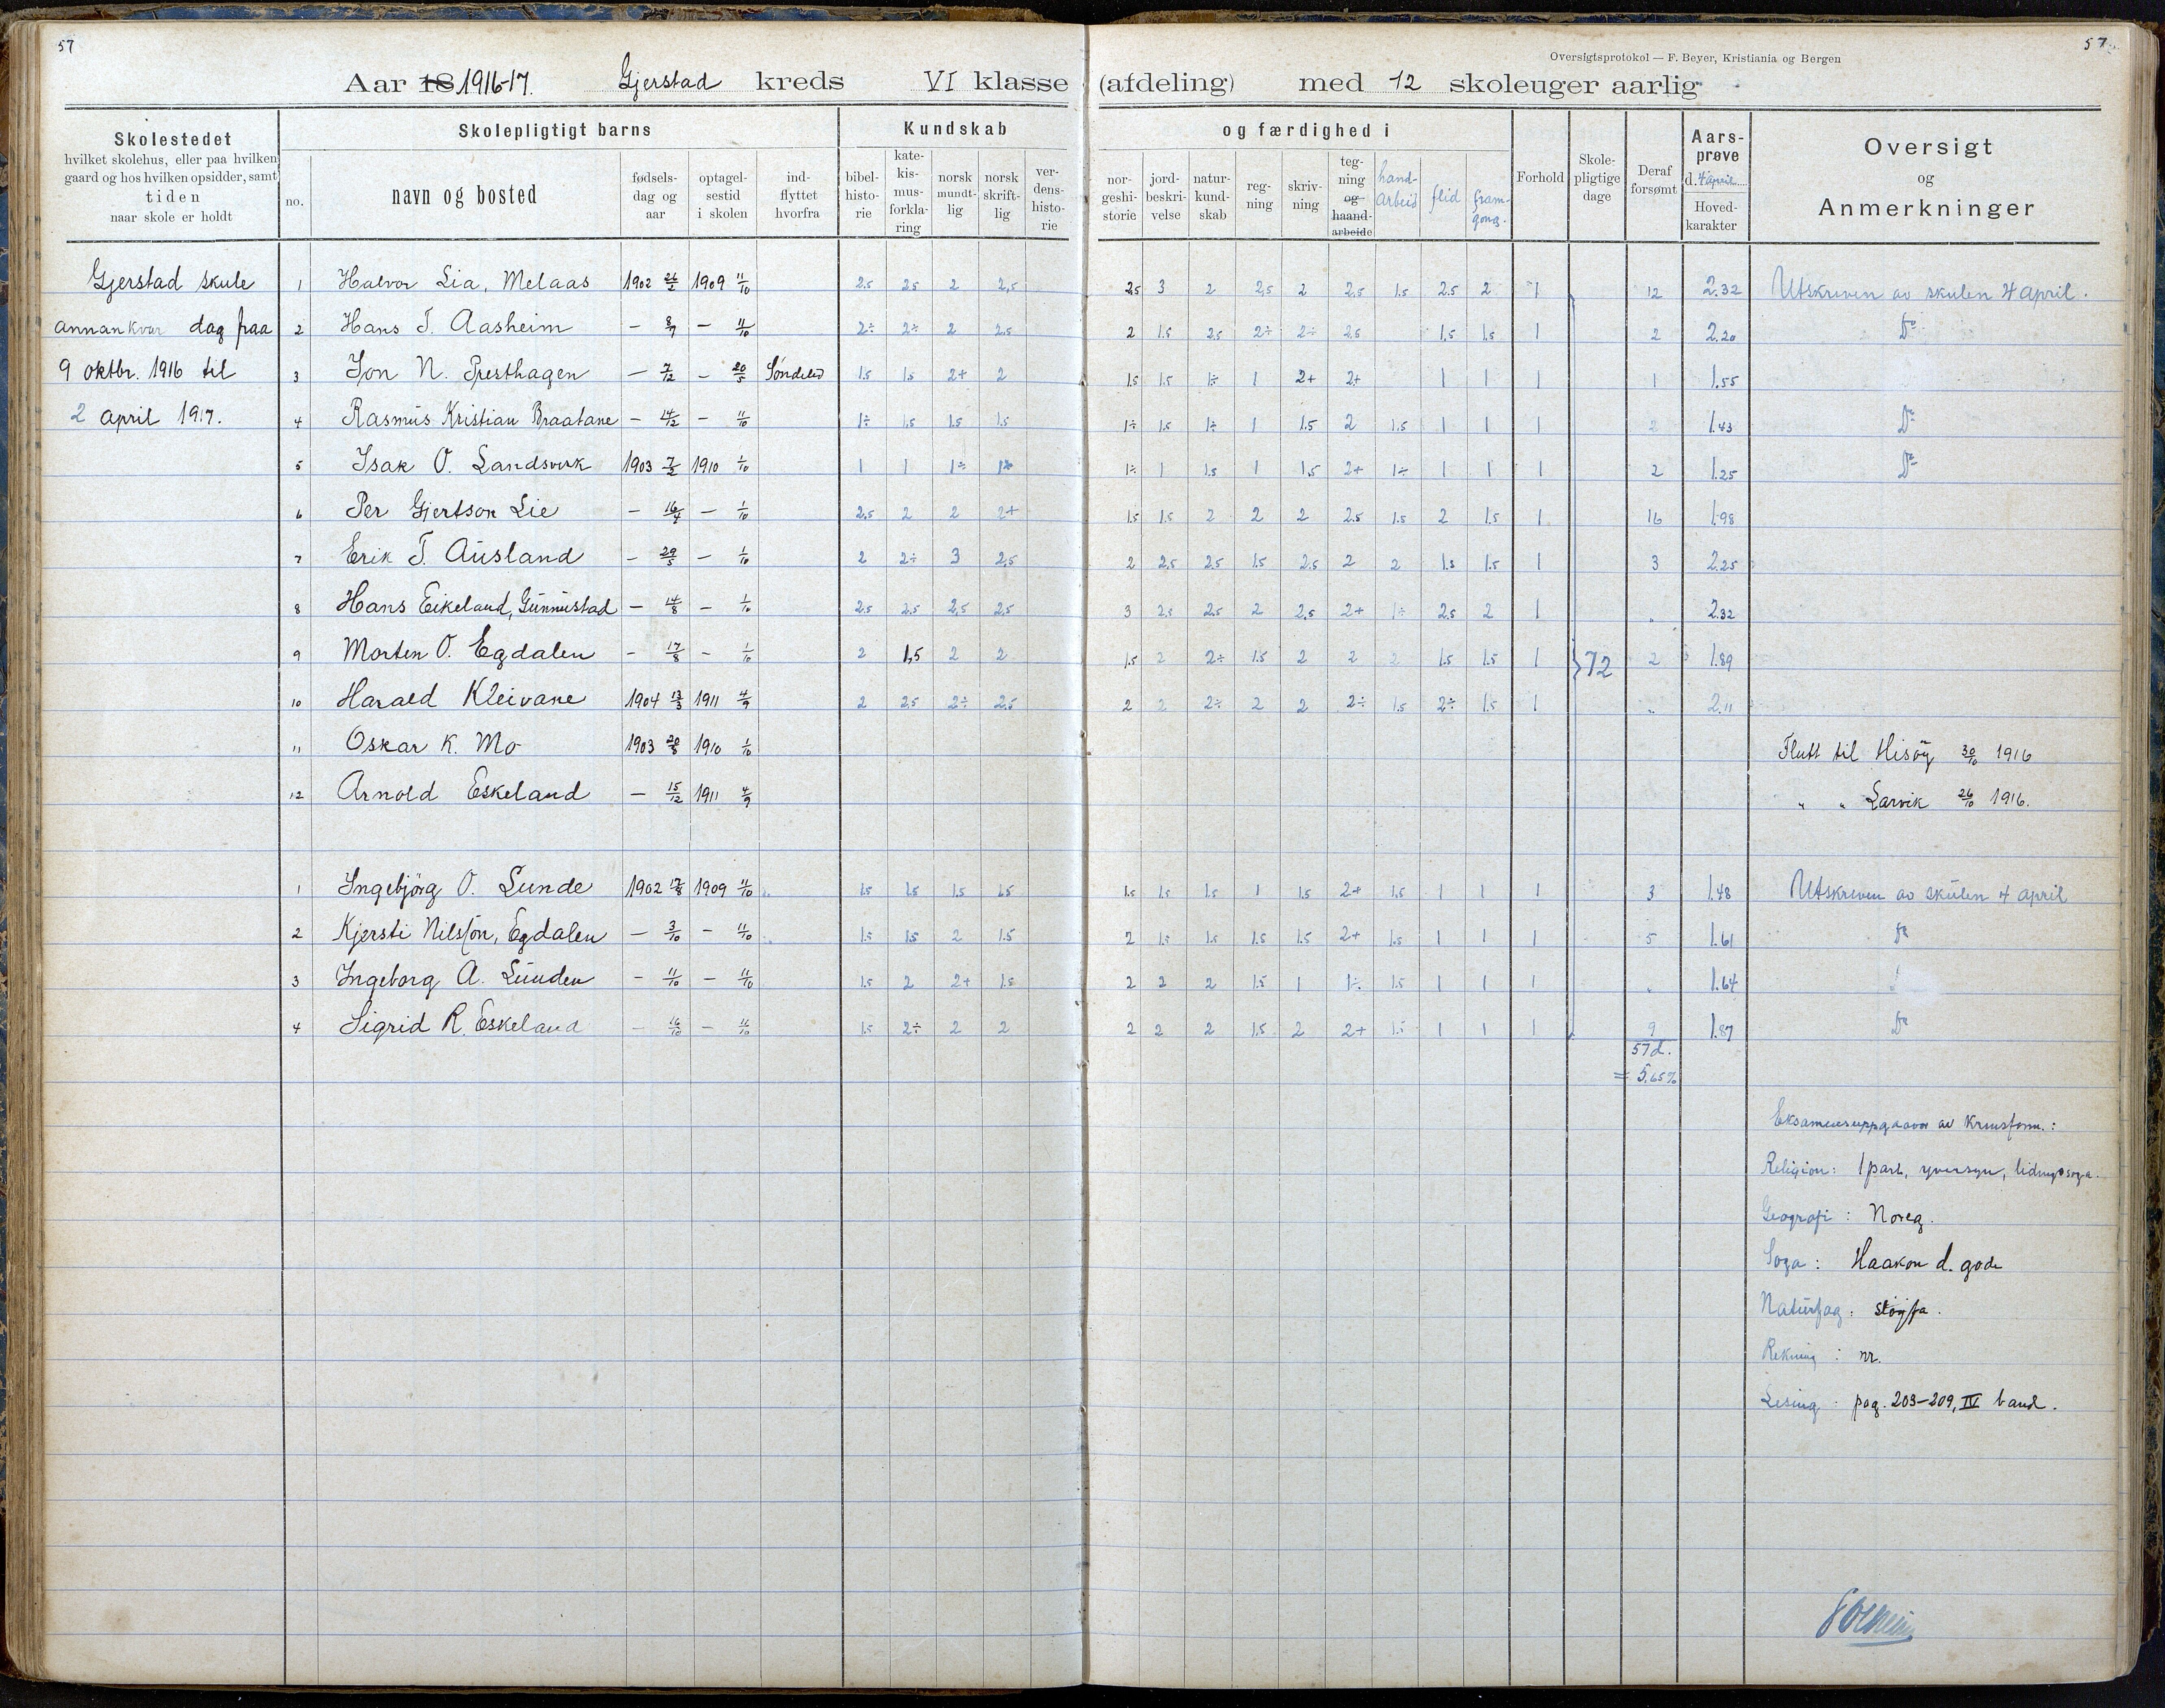 57
57
Oversigtsprotokol — F. Beyer, Kristiania og Bergen
Aar 18 1916-17. Gjerstad kreds VI klasse (afdeling) med 12 skoleuger aarlig
Skolestedet
hvilket skolehus, eller paa hvilken
gaard og hos hvilken opsidder, samt
tiden
naar skole er holdt
Skolepligtigt barns
no.
navn og bosted
fødsels-
dag og
aar
optagel-
sestid
i skolen
ind-
flyttet
hvorfra
Kundskab
bibel-
histo-
rie
kate-
kis-
mus-
forkla-
ring
norsk
mundt-
lig
norsk
skrift-
lig
ver-
dens-
histo-
rie
og færdighed i
nor-
geshi-
storie
jord-
beskri-
velse
natur-
kund-
skab
reg-
ning
skriv-
ning
teg-
ning
og
haand-
arbeide
hand-
arbeid
flid
fram-
gong.
Forhold
Skole-
pligtige
dage
Deraf
forsømt
Aars-
prøve
d. 4 april
Hoved-
karakter
Oversigt
og
Anmerkninger
Gjerstad skule
annankvar dag fraa
9 oktbr. 1916 til
2 april 1917.
1 Halvor Lia, Melaas 1902 26/2 1909 11/10 2,5 2,5 2 2,5 2,5 3 2 2,5 2 2,5 1.5 2.5 2 1 12 2.32 Utskriven av skulen 4 april.
2 Hans T. Aasheim — 8/7 — 11/10 2÷ 2÷ 2 2.5 2 1.5 2.5 2÷ 2÷ 2.5 1.5 1.5 1 2 2.20 Do
3 Jon N. Presthagen — 7/12 — 20/5 Søndeled 1.5 1.5 2+ 2 1.5 1.5 1÷ 1 2+ 2+ 1 1 1 1 1.55
4 Rasmus Kristian Braatane — 14/12 — 11/10 1÷ 1.5 1.5 1.5 1÷ 1.5 1÷ 1 1.5 2 1.5 1 1 1 2 1.43 Do
5 Isak O. Landsverk 1903 7/2 1910 1/10 1 1 1÷ 1÷ 1÷ 1 1.5 1 1.5 2+ 1÷ 1 1 1 2 1.25 Do
6 Per Gjertson Lie — 16/4 — 1/10 2.5 2 2 2+ 1.5 1.5 2 2 2 2.5 1.5 2 1.5 1 16 1.98
7 Erik T. Ausland — 29/5 — 1/10 2 2÷ 3 2,5 2 2.5 2.5 1.5 2.5 2 2 1.5 1.5 1 3 2.25
8 Hans Eikeland, Gunnustad — 14/8 — 1/10 2.5 2.5 2,5 2.5 3 2.5 2.5 2 2,5 2+ 1÷ 2.5 2 1 " 2.32
9 Morten O. Egdalen — 17/8 — 1/10 2 1,5 2 2 1.5 2 2÷ 1.5 2 2 2 1.5 1.5 1 72 2 1.89
10 Harald Kleivane 1904 13/3 1911 4/9 2 2,5 2÷ 2.5 2 2 2÷ 2 2 2÷ 1.5 2÷ 1.5 1 " 2.11
11 Oskar K. Mo 1903 20/8 1910 1/10 Flutt til Hisøy 30/10 1916
12 Arnold Eskeland — 15/12 1911 4/9 " " Larvik 26/10 1916.
1 Ingebjörg O. Lunde 1902 17/8 1909 11/10 1.5 1.5 1.5 1.5 1.5 1.5 1.5 1 1.5 2+ 1.5 1 1 1 3 1.48 Utskriven av skulen 4 april
2 Kjersti Nilssön, Egdalen — 3/10 — 11/10 1.5 1.5 2 1.5 2 1.5 1.5 1.5 1.5 2+ 1.5 1 1 1 5 1.61 Do
3 Ingeborg A. Lunden — 11/10 — 11/10 1.5 2 2+ 1.5 2 2 2 1.5 1 1÷ 1.5 1 1 1 " 1.64
4 Sigrid R. Eskeland — 16/10 — 11/10 1.5 2÷ 2 2 2 2 2 1.5 2 2+ 1.5 1 1 1 9 1.87 Do
57 d.
= 5.65%
Eksamensuppgaavor av
Religion: 1 part, yversyn,
Geografi: Noreg.
Soga: Haakon d. gode
Naturfag:
Rekning: nr.
Lesing: pag. 203-209, IV band.